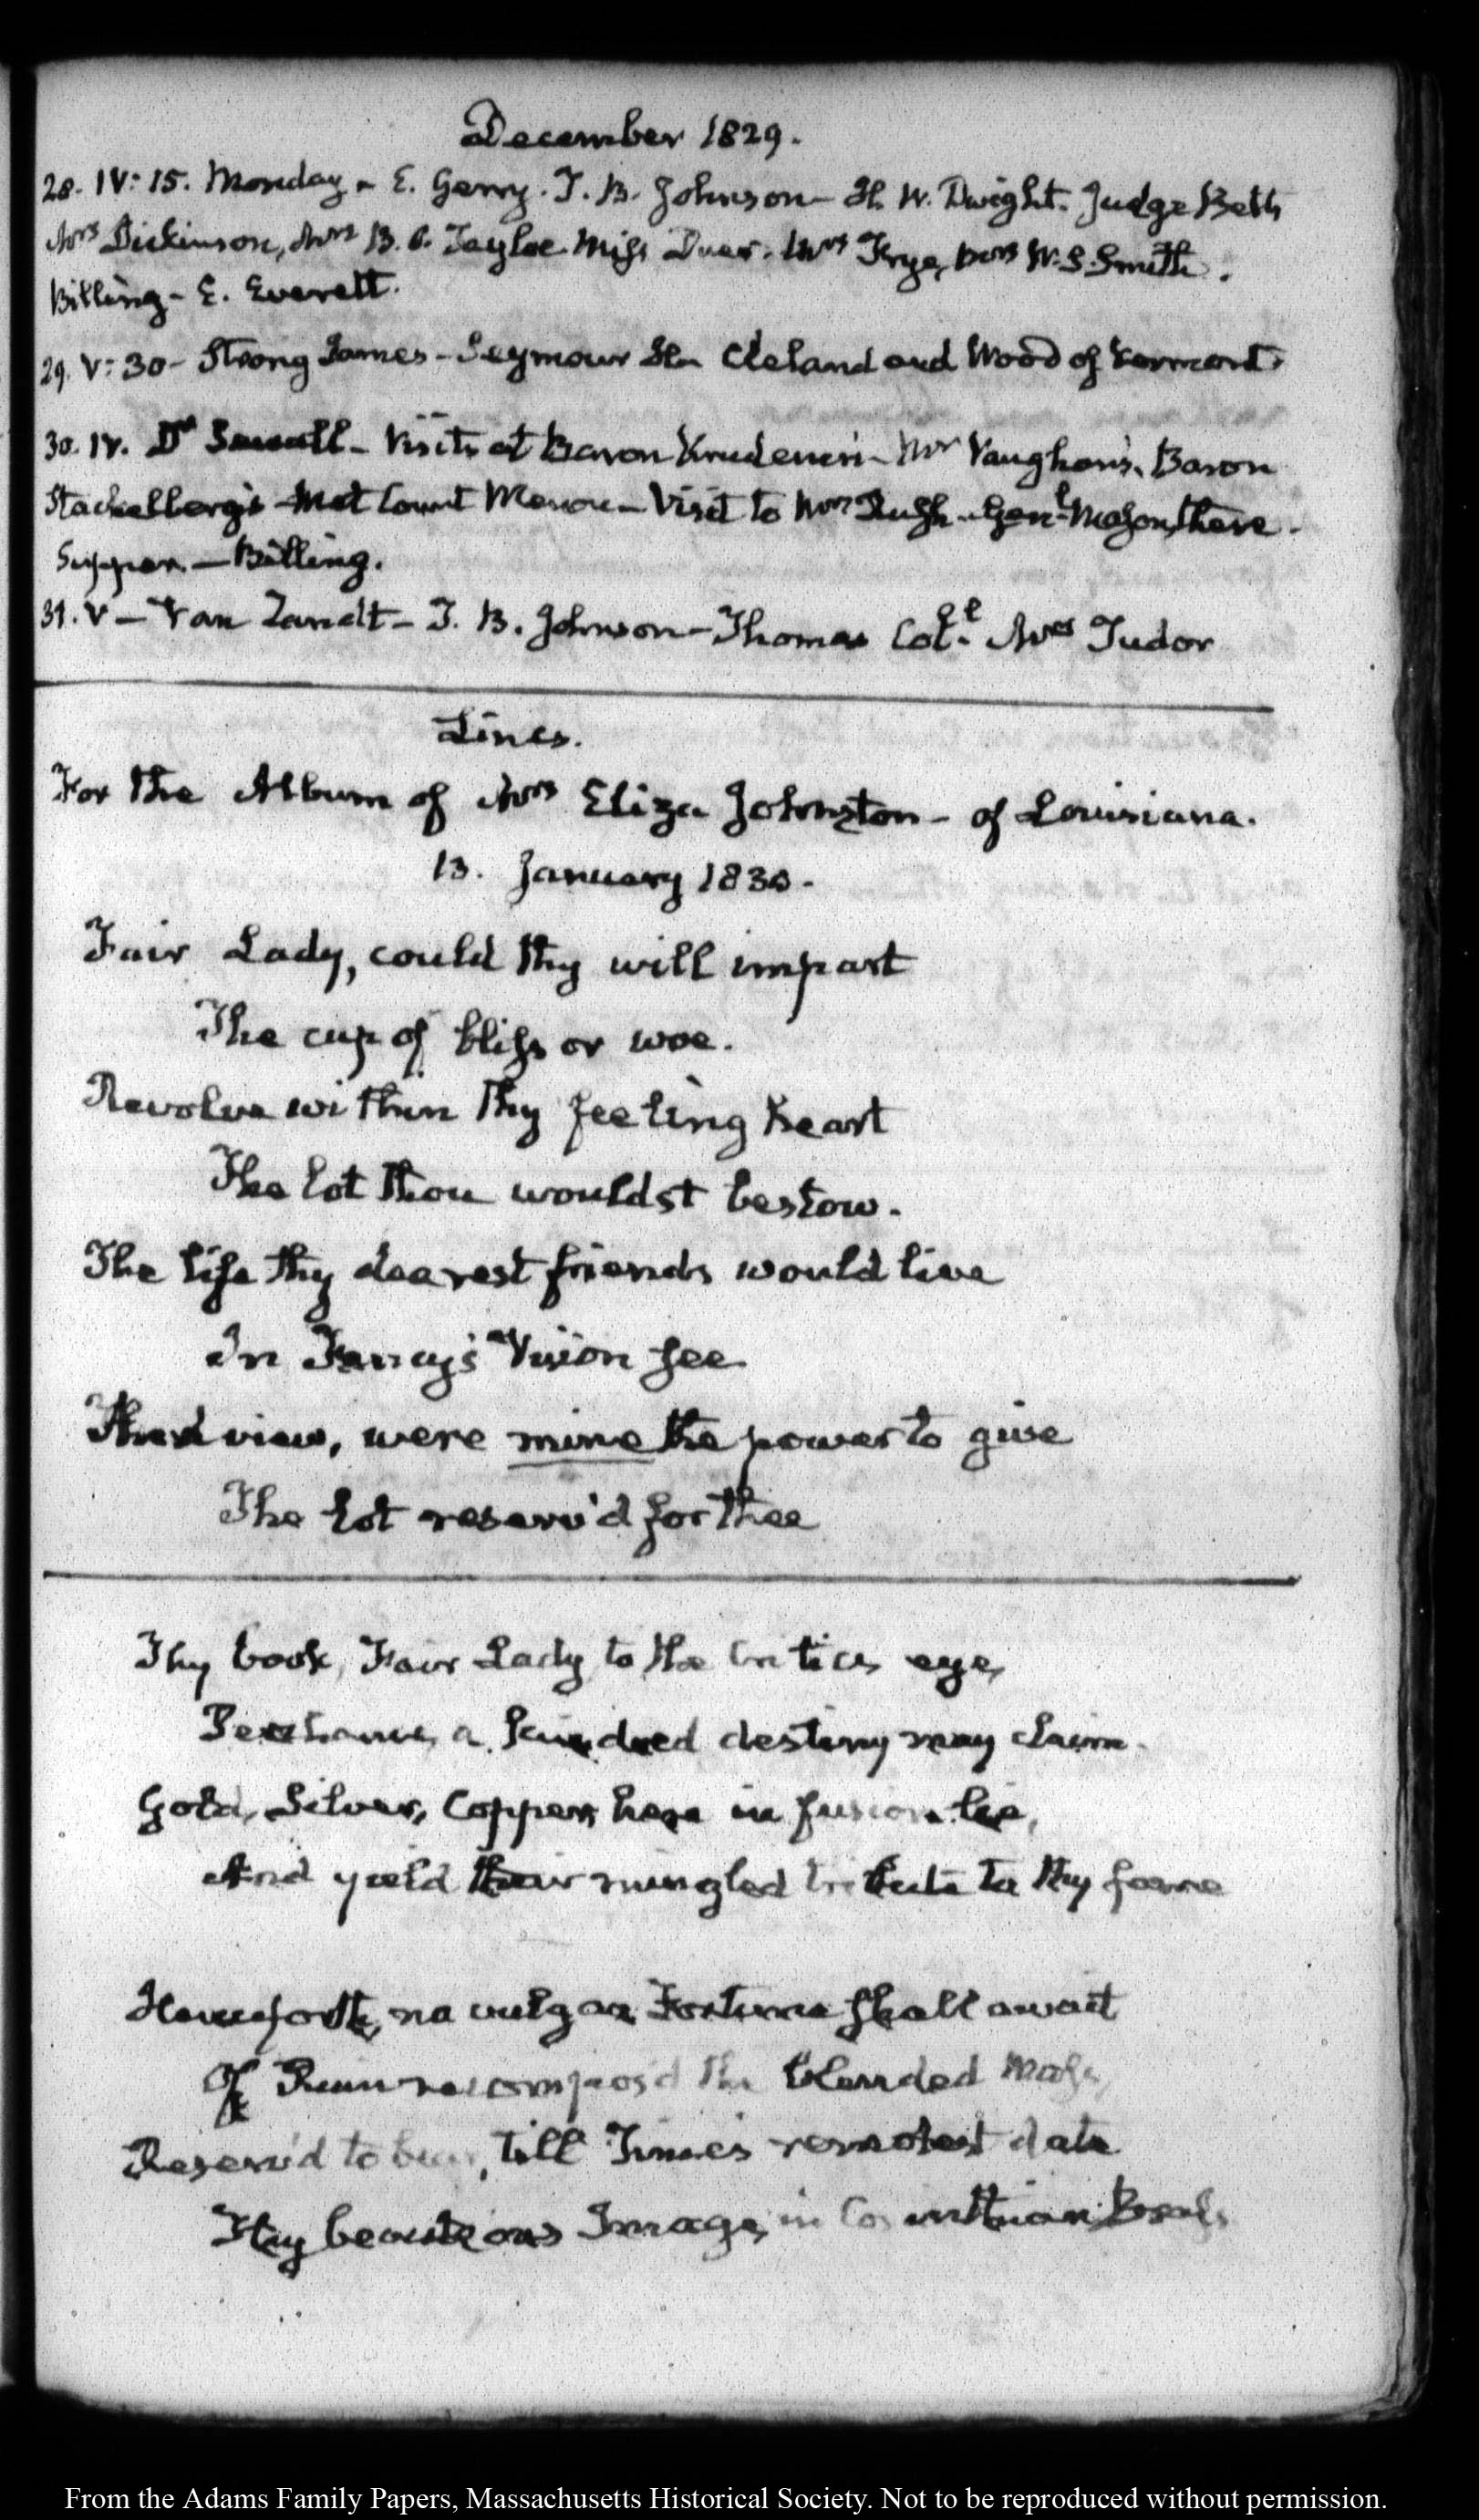 December 1829.
28. IV: 15. Monday - E. Gerry. T. B. Johnson - H. W. Dwight. Judge Betts
Mrs Dickinson, Mrs B. O. Tayloe Miss Duer. Mrs Frye, Mrs W. S. Smith.
Billing - E. Everett.
29. V: 30 - Strong James - Seymour H. Cleland and Wood of Vermont.
30. IV. Dr Sewall - Visits at Baron Krudener's - Mr Vaughan's. Baron
Stackelberg's - Met Count Menou - Visit to Mrs Rush - Genl Mason, there -
Supper - Billing.
31. V - Van Zandt - T. B. Johnson - Thomas Coll. Mrs Tudor
Lines.
For the Album of Mrs Eliza Johnston - of Louisiana.
13. January 1830.
Fair Lady, could thy will impart
The cup of bliss or woe.
Revolve within thy feeling heart
The lot thou wouldst bestow.
The life thy dearest friends would live
In Fancy's Vision see
And view, were mine the power to give
The lot reserv'd for thee
Thy book, Fair Lady, to the Critic's eye,
Perchance, a kindred destiny may claim.
Gold, Silver, Copper, here in fusion lie,
And yield their mingled tribute to thy fame
Henceforth, no vulgar Fortune shall await
Of Ruin recompos'd the blended Mass,
Reserv'd to bear, till Time's remotest date
Thy beauteous Image, in Corinthian Brass.
From the Adams Family Papers, Massachusetts Historical Society. Not to be reproduced without permission.